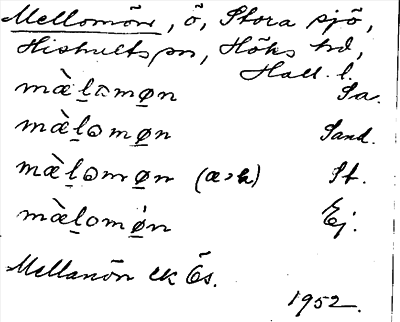 Mellomön, ö, Stora sjö,
Hishults sn, Höks hd,
Hall. l.
mæ̀l̠ɷmø̠n Sa.
mæ̀l̠ɷmø̠n Sand.
mæ̀l̠ɷmø̠n St.
mæ̀l̠omø̠̀n Ej.
Mellanön ek Ös.
1952.